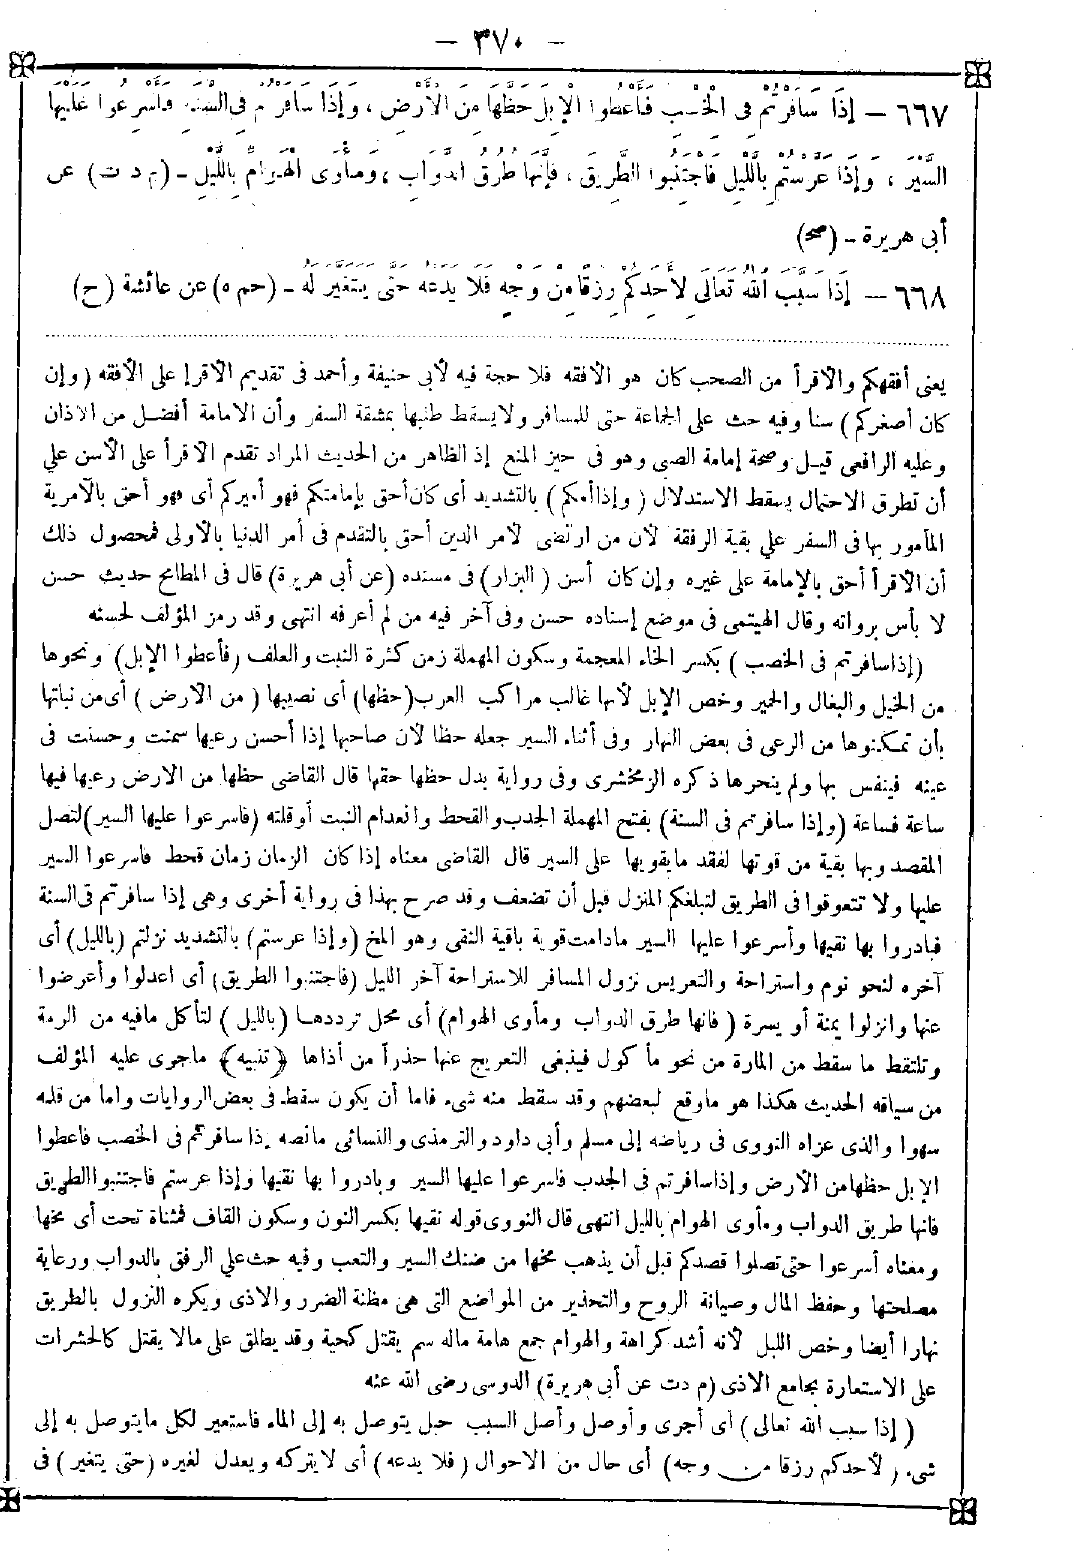 - ٣٧٠ -
٦٦٧ - إِذَا سَافَرْتُمْ فِي الْخِصْبِ فَأَعْطُوا الْإِبِلَ حَظَّهَا مِنَ الْأَرْضِ ، وَإِذَا سَافَرْتُمْ فِي السَّنَةِ فَأَسْرِعُوا عَلَيْهَا
السَّيْرَ ، وَإِذَا عَرَّسْتُمْ بِاللَّيْلِ فَاجْتَنِبُوا الطَّرِيقَ ، فَإِنَّهَا طُرُقُ الدَّوَابِّ ، وَمَأْوَى الْهَوَامِّ بِاللَّيْلِ - (م د ت) عن
أبي هريرة - (صح)
٦٦٨ - إِذَا سَبَّبَ اللهُ تَعَالَى لِأَحَدِكُمْ رِزْقًا مِنْ وَجْهٍ فَلَا يَدَعْهُ حَتَّى يَتَغَيَّرَ لَهُ - (حم ه) عن عائشة (ح)
يعنى أفقهكم والأقرأ من الصحب كان هو الأفقه فلا حجة فيه لأبى حنيفة وأحمد فى تقديم الأقرإ على الأفقه (وإن
كان أصغركم) سنا وفيه حث على الجماعة حتى للمسافر ولا يسقط طلبها بمشقة السفر وأن الامامة أفضل من الاذان
وعليه الرافعى قيل وصحة إمامة الصبي وهو فى حيز المنع إذ الظاهر من الحديث المراد تقدم الأقرأ على الأسن علي
أن تطرق الاحتمال يسقط الاستدلال (وإذا أمكم) بالتشديد أى كان أحق بإمامتكم فهو أميركم أى فهو أحق بالآمرية
المأمور بها فى السفر علي بقية الرفقة لأن من ارتضى لأمر الدين أحق بالتقدم فى أمر الدنيا بالأولى فمحصول ذلك
أن الأقرأ أحق بالإمامة على غيره وإن كان أسن (البزار) فى مسنده (عن أبى هريرة) قال فى المطامح حديث حسن
لا بأس برواته وقال الهيتمى فى موضع إسناده حسن وفى آخر فيه من لم أعرفه انتهى وقد رمز المؤلف لحسنه
(إذا سافرتم فى الخصب) بكسر الخاء المعجمة وسكون المهملة زمن كثرة النبت والعلف (فأعطوا الإبل) ونحوها
من الخيل والبغال والحمير وخص الإبل لأنها غالب مراكب العرب (حظها) أى نصيبها (من الأرض) أى من نباتها
بأن تمكنوها من الرعى فى بعض النهار وفى أثناء السير جعله حظا لأن صاحبها إذا أحسن رعيها سمنت وحسنت فى
عينه فينفس بها ولم ينحرها ذكره الزمخشرى وفى رواية بدل حظها حقها قال القاضى حظها من الأرض رعيها فيها
ساعة فساعة (وإذا سافرتم فى السنة) بفتح المهملة الجدب والقحط وانعدام النبت أو قلته (فأسرعوا عليها السير) لتصل
المقصد وبها بقية من قوتها لفقد ما يقويها على السير قال القاضى معناه إذا كان الزمان زمان قحط فأسرعوا السير
عليها ولا تتعوقوا فى الطريق لتبلغكم المنزل قبل أن تضعف وقد صرح بهذا فى رواية أخرى وهى إذا سافرتم فى السنة
فبادروا بها نقيها وأسرعوا عليها السير مادامت قوية باقية النقى وهو المخ (وإذا عرستم) بالتشديد نزلتم (بالليل) أى
آخره لنحو نوم واستراحة والتعريس نزول المسافر للاستراحة آخر الليل (فاجتنبوا الطريق) أى اعدلوا وأعرضوا
عنها وانزلوا يمنة أو يسرة (فانها طرق الدواب ومأوى الهوام) أى محل ترددها (بالليل) لتأكل مافيه من الرمة
وتلتقط ما سقط من المارة من نحو مأكول فينبغى التعريج عنها حذراً من أذاها (تنبيه) ماجرى عليه المؤلف
من سياقه الحديث هكذا هو ماوقع لبعضهم وقد سقط منه شىء فاما أن يكون سقط فى بعض الروايات واما من قلمه
سهوا والذى عزاه النووى فى رياضه إلى مسلم وأبى داود والترمذى والنسائى مانصه إذا سافرتم فى الخصب فاعطوا
الإبل حظها من الأرض وإذا سافرتم فى الجدب فاسرعوا عليها السير وبادروا بها نقيها وإذا عرستم فاجتنبوا الطريق
فانها طريق الدواب ومأوى الهوام بالليل انتهى قال النووى قوله نقيها بكسر النون وسكون القاف فمثناة تحت أى مخها
ومعناه أسرعوا حتى تصلوا قصدكم قبل أن يذهب مخها من ضنك السير والتعب وفيه حث علي الرفق بالدواب ورعاية
مصلحتها وحفظ المال وصيانة الروح والتحذير من المواضع التى هى مظنة الضرر والاذى ويكره النزول بالطريق
نهارا أيضا وخص الليل لأنه أشد كراهة والهوام جمع هامة ماله سم يقتل كحية وقد يطلق على مالا يقتل كالحشرات
على الاستعارة بجامع الاذى (م دت عن أبى هريرة) الدوسى رضى الله عنه
(إذا سبب الله تعالى) أى أجرى وأوصل وأصل السبب حبل يتوصل به إلى الماء فاستعير لكل مايتوصل به إلى
شىء (لأحدكم رزقا من وجه) أى حال من الاحوال (فلا يدعه) أى لايتركه ويعدل لغيره (حتى يتغير) فى